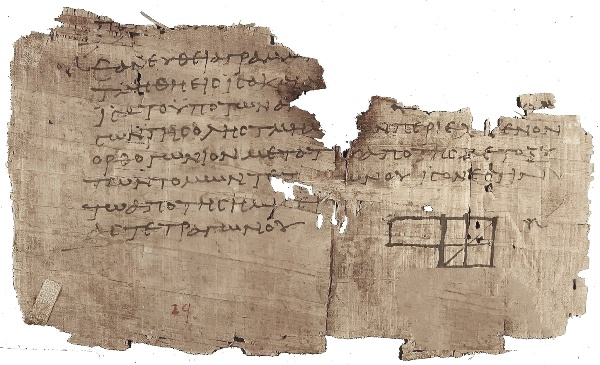 ΕΑΝΕΥΘΕΙΑΓΡΑΜΜ
ΤΜΗΘΗΕΙϹΙϹΑΚΑΙΑ
ΙϹΑΤΟΥΠΟΤΩΝΑ
ΤΩΝΤΗϹΟΛΗϹΤΜΗΜ ΩΝΠΕΡΙΕΧΟΜΕΝΟΝ
ΟΡΘΟΓΩΝΙΟΝΜΕΤΑΤΟΥΑΠΟΤΗϹΜΕΤΟΞΥ
ΤΩΝΤΟΜΩΝΤΕΤ ΓΩΝΟΥΙϹΟΝΕϹΤΙΝ
ΤΩΑΠΟΤΗϹΗΜΙϹ
ΑϹΤΕΤΡΑΓΩΝΟΥ
29